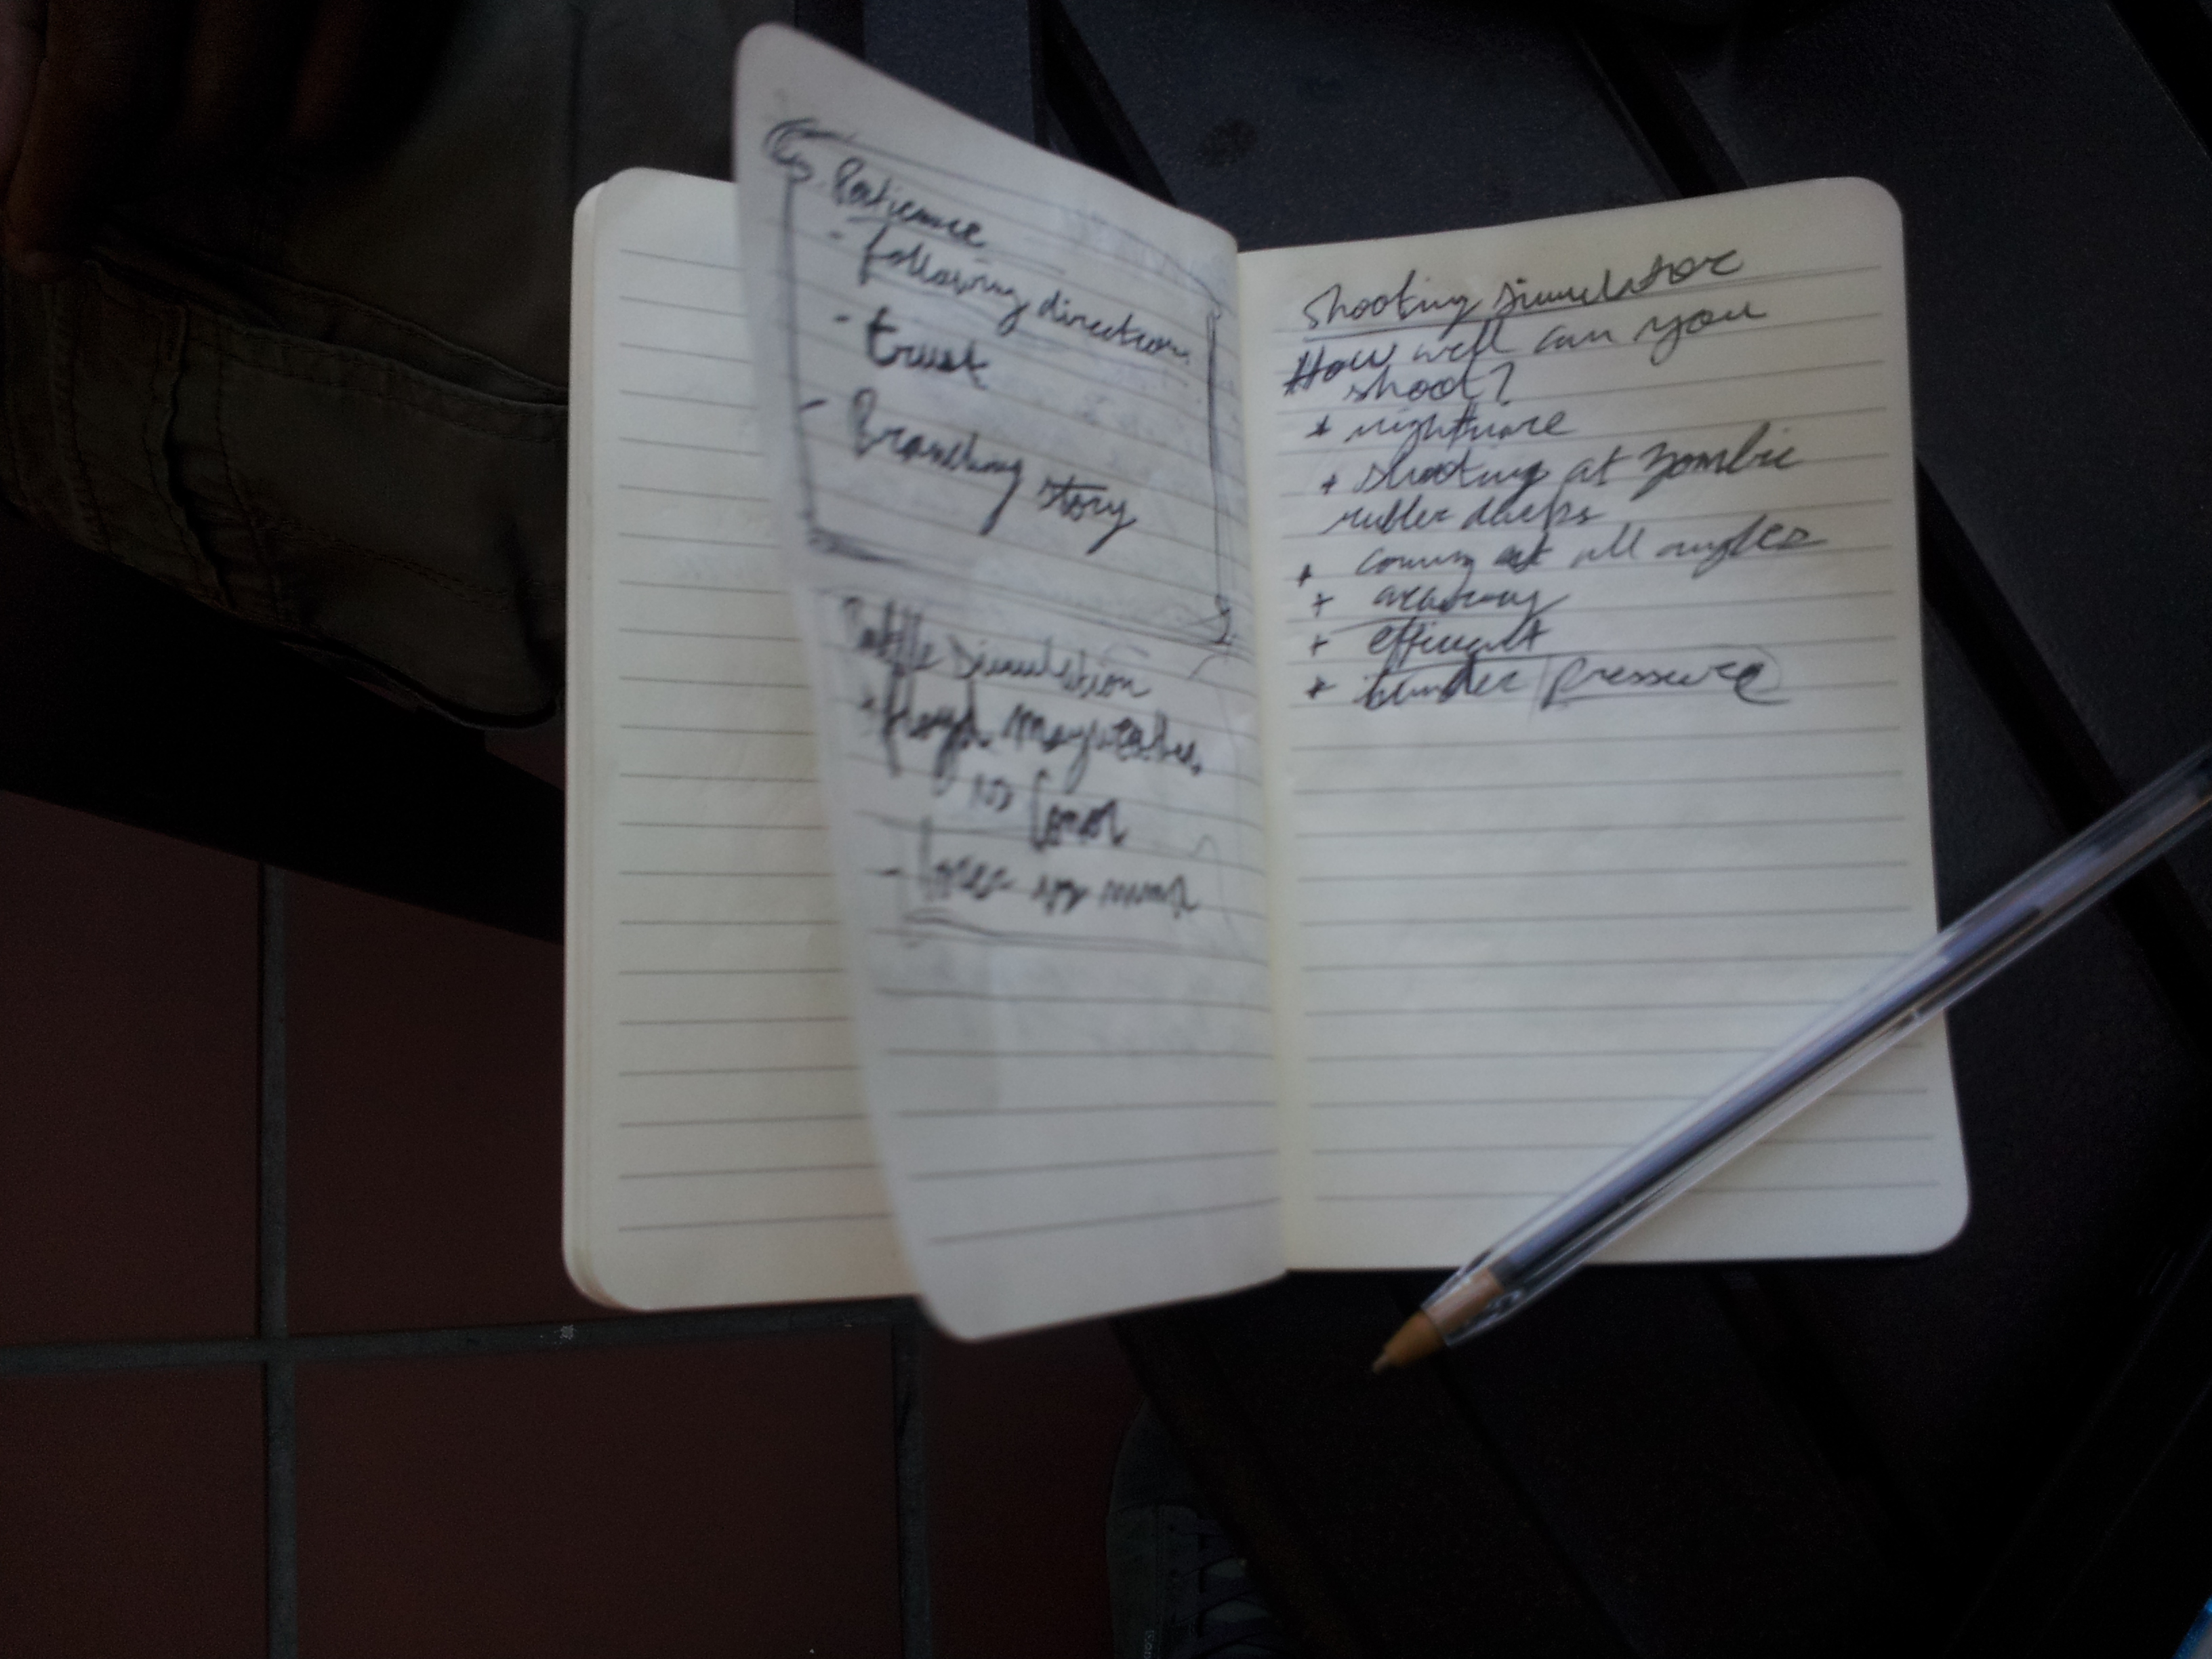 Patience
- following directions
- trust
- Branching story
Battle Simulation
* floyd Mayweather
vs Conor
- loses
Shooting Simulator
How well can you
shoot?
* nightmare
* shooting at zombie
rubber ducks
* coming at all angles
+ accuracy
+ efficient
* under pressure